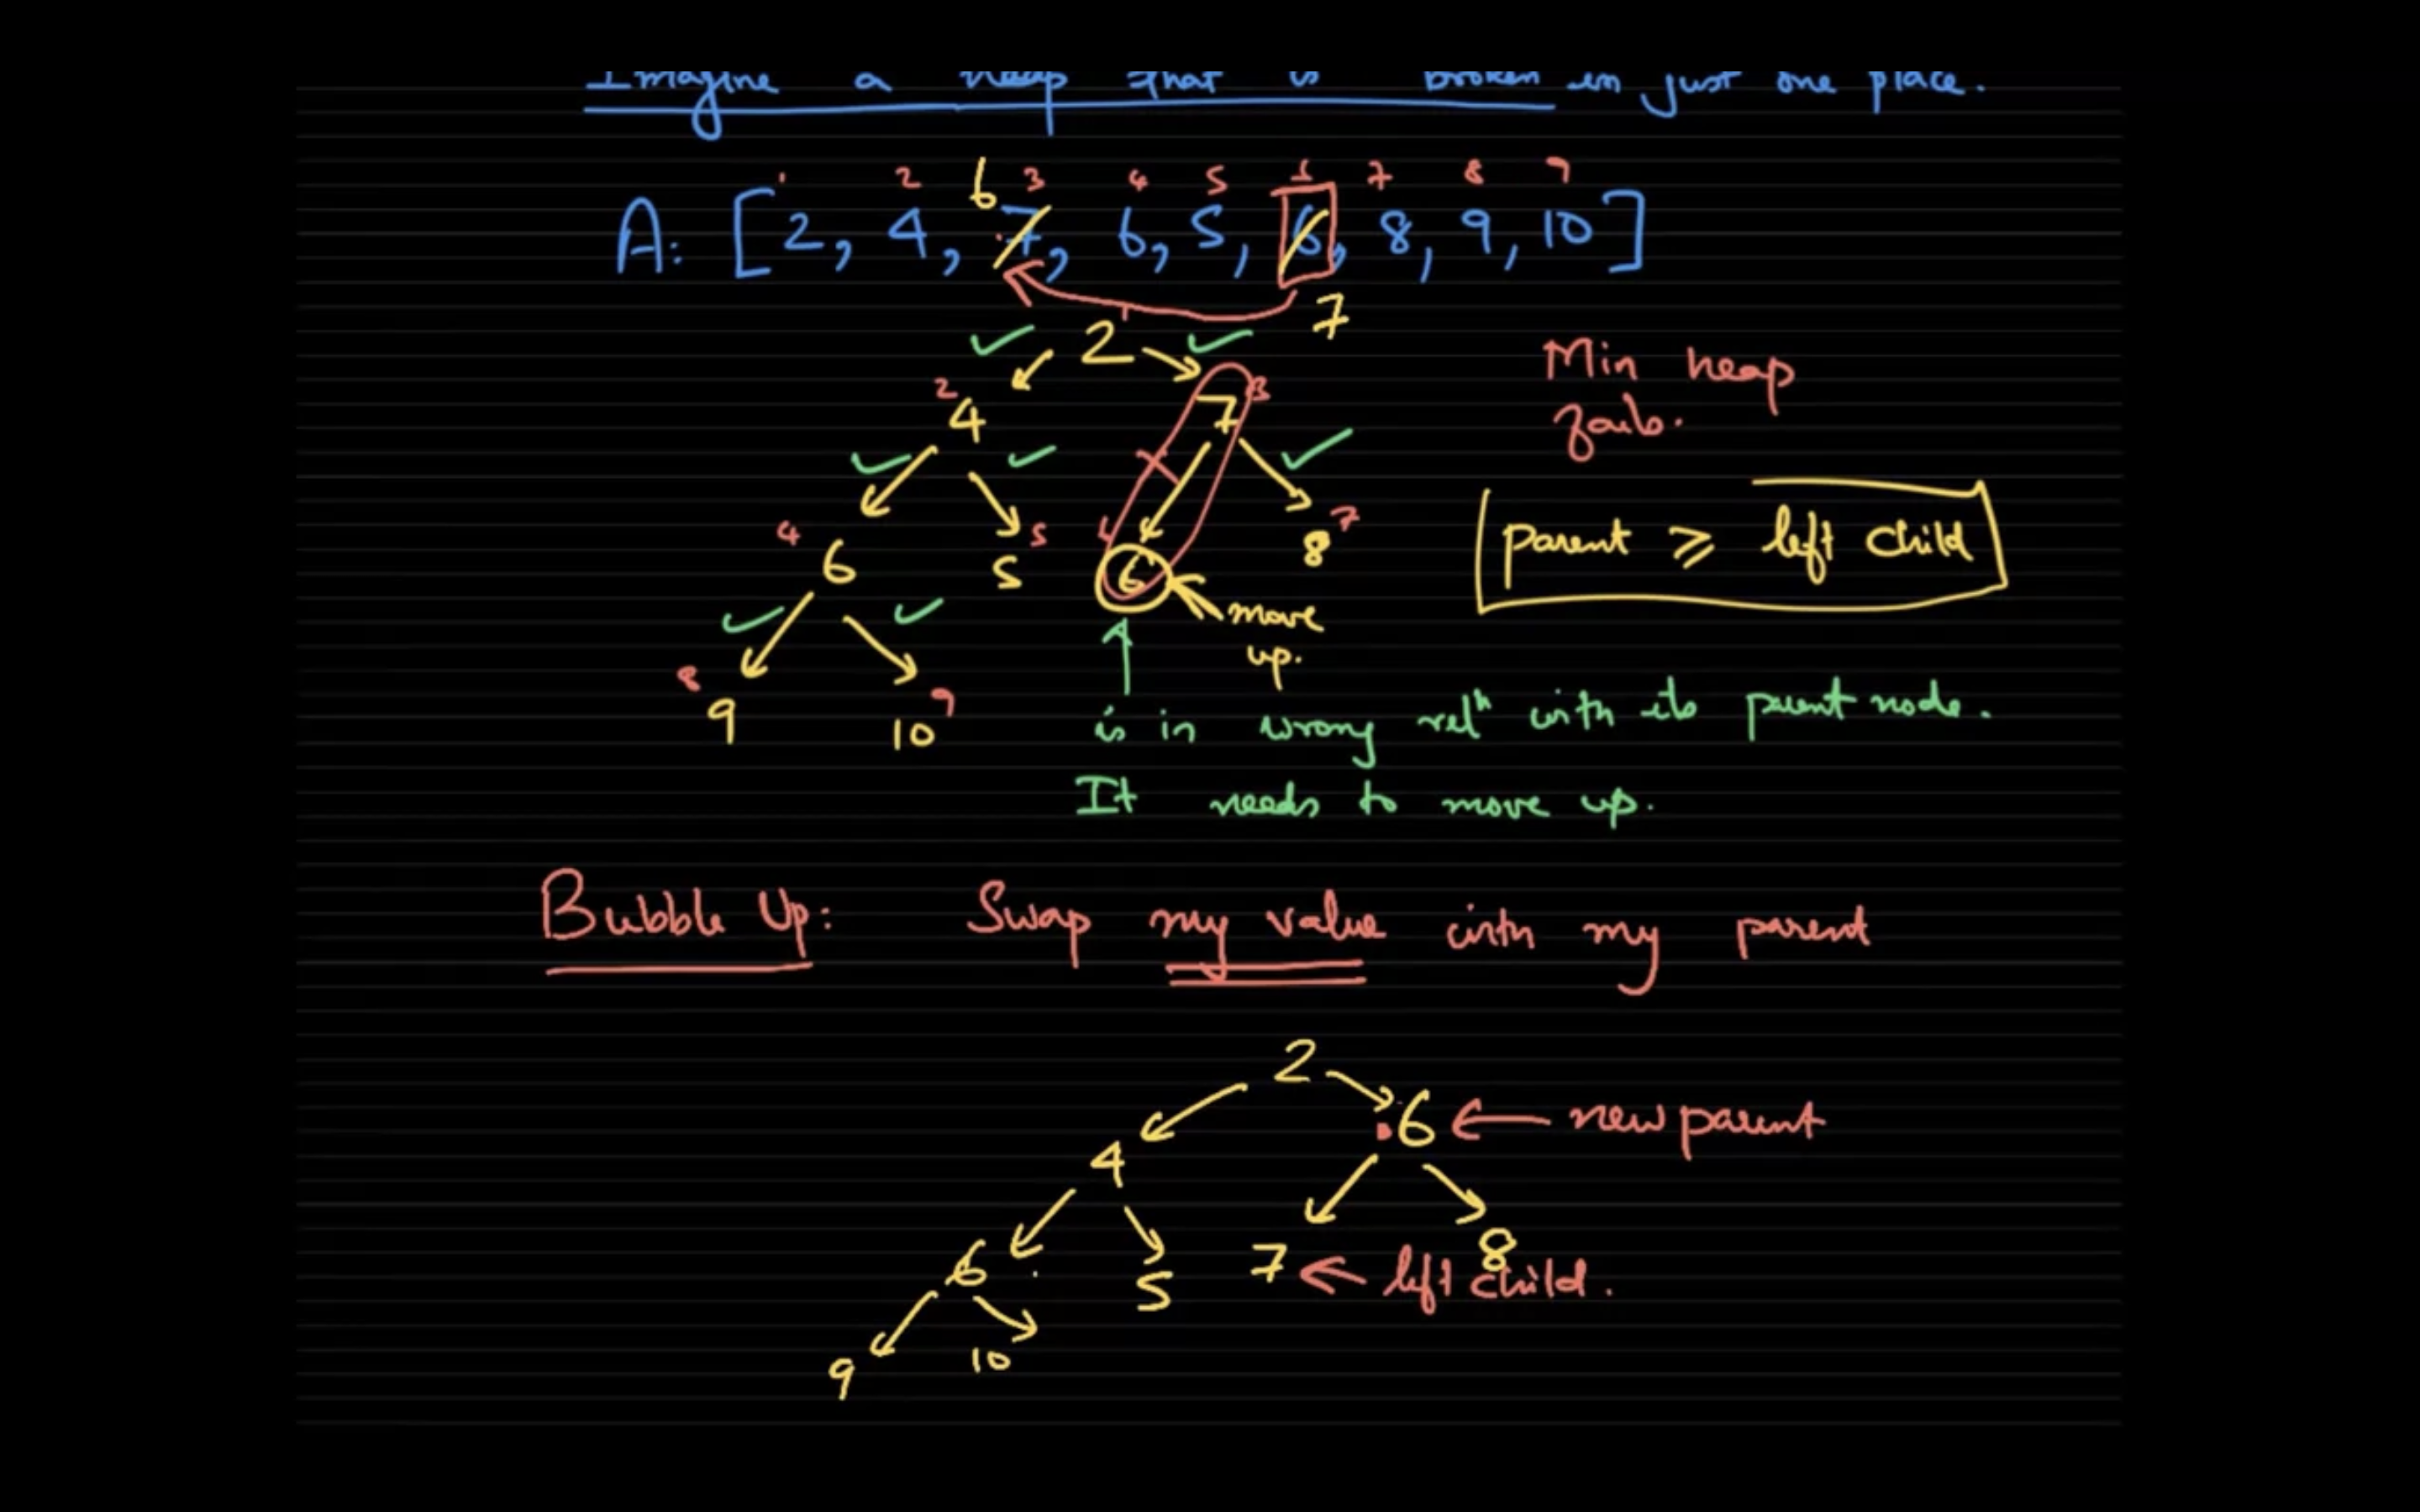 Imagine a heap that is broken in just one place.
1 2 6 3 4 5 6 7 8 9
A: [2, 4, 7, 6, 5, 6, 8, 9, 10]
7
2 1
Min heap
fails.
2 4 7 3
Parent ≥ left child
4 6 5 5 6 6 8 7
move
up.
8 9 10 9
is in wrong relⁿ with its parent node.
It needs to move up.
Bubble Up: Swap my value with my parent
2
4 6 ← new parent
6 5 7 ← left child. 8
9 10